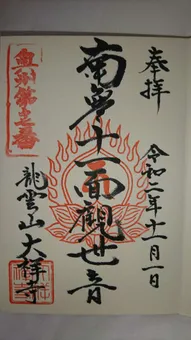 奉拝
令和二年十一月一日
南無十一面觀世音
龍雲山大祥寺